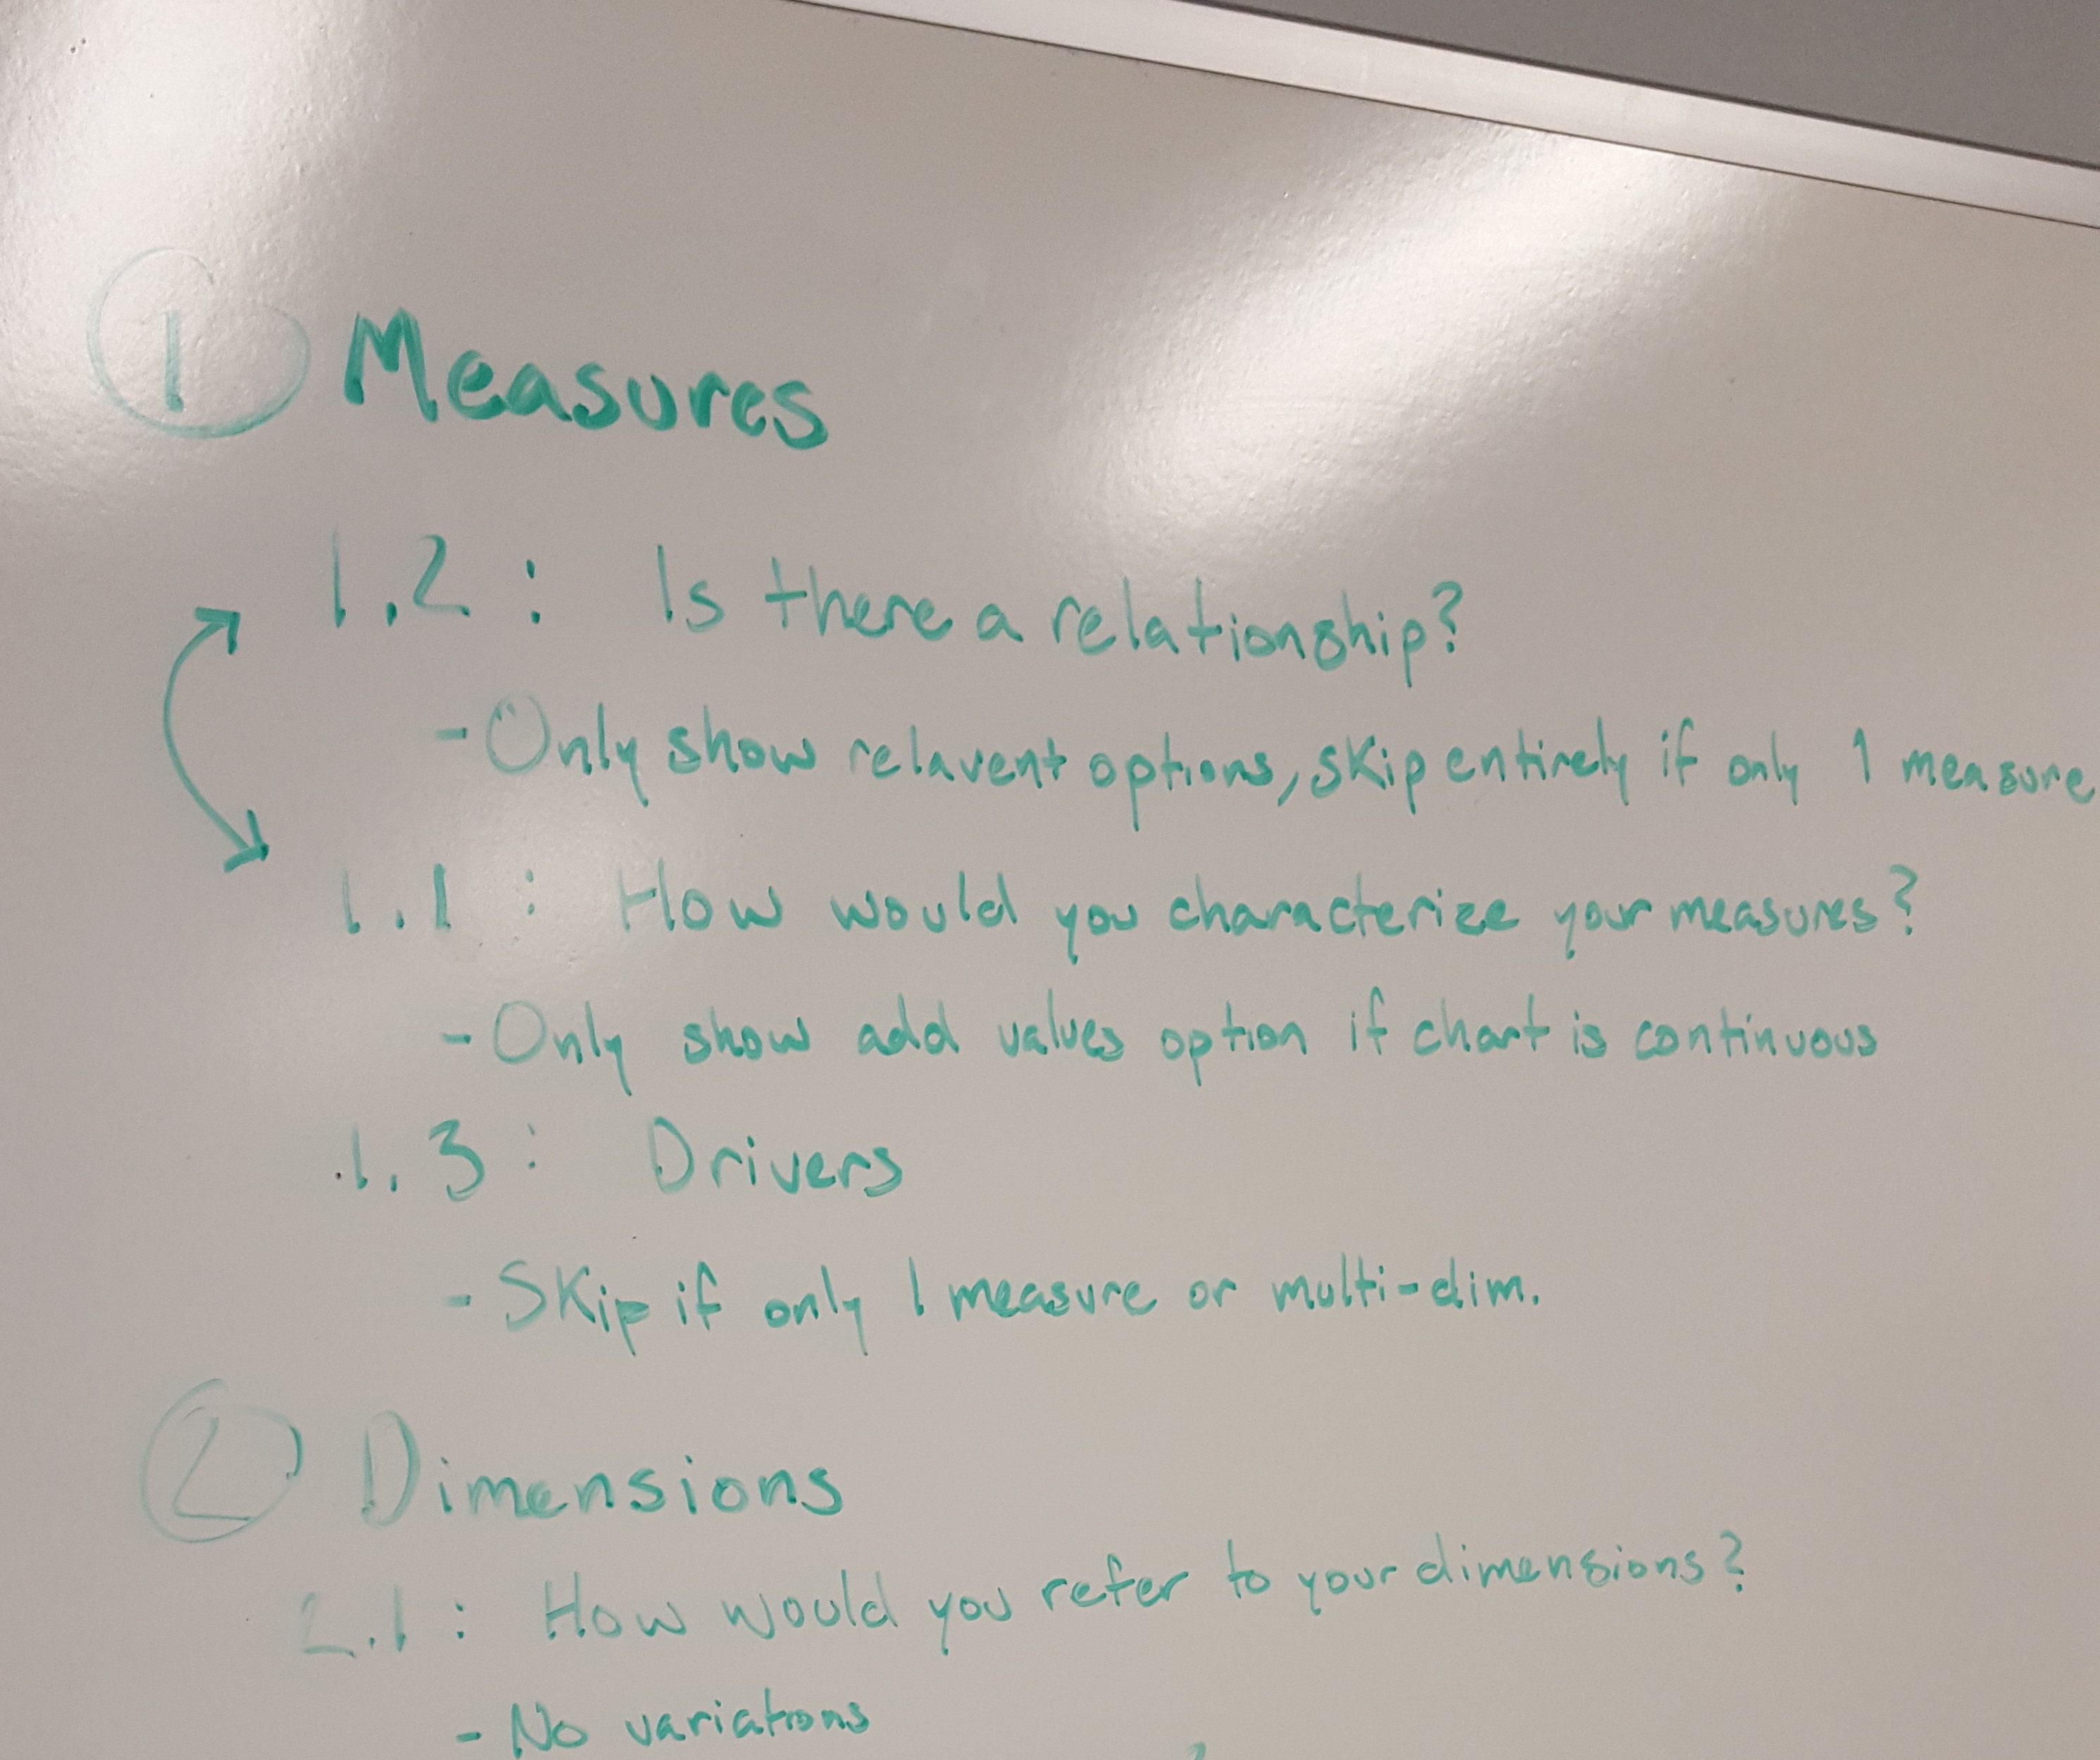 1 Measures
1.2 : Is there a relationship?
- Only show relavent options, skip entirely if only 1 measure
1.1 : How would you characterize your measures?
- Only show add values option if chart is continuous
1.3 : Drivers
- Skip if only 1 measure or multi-dim.
2 Dimensions
2.1 : How would you refer to your dimensions?
- No variations